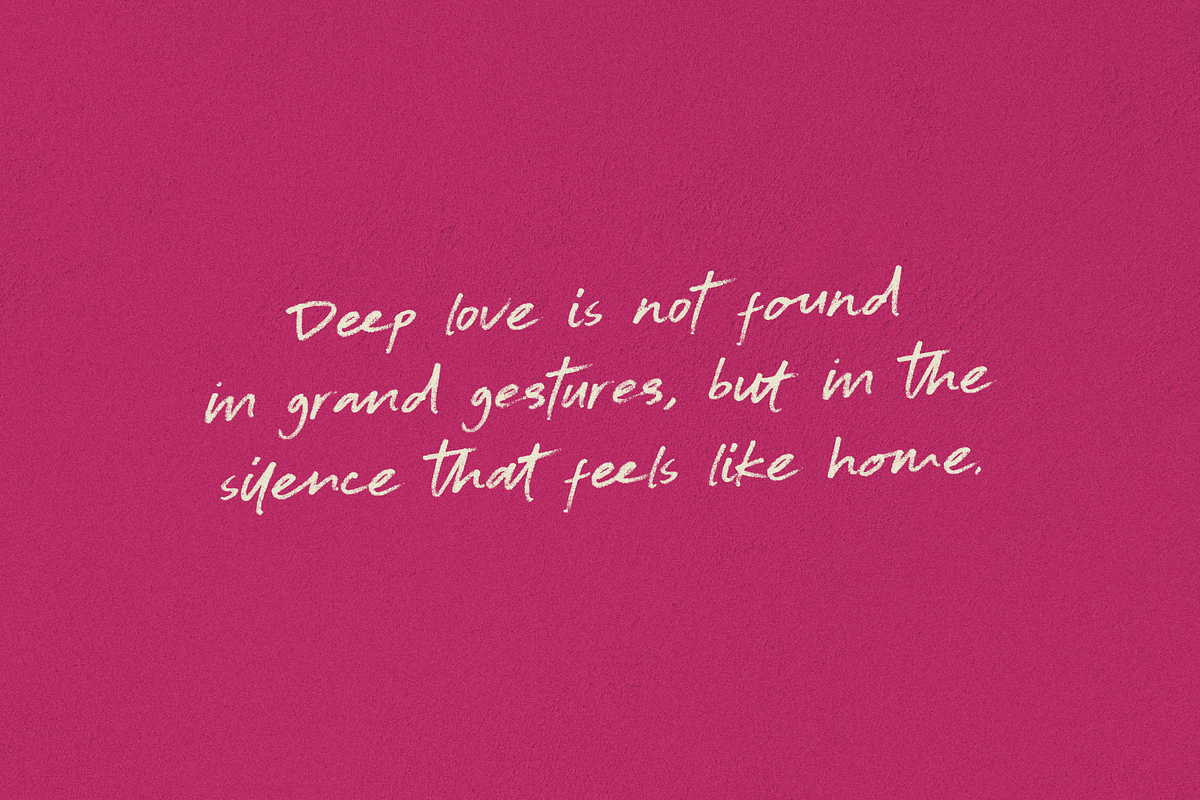 Deep love is not found
in grand gestures, but in the
silence that feels like home.